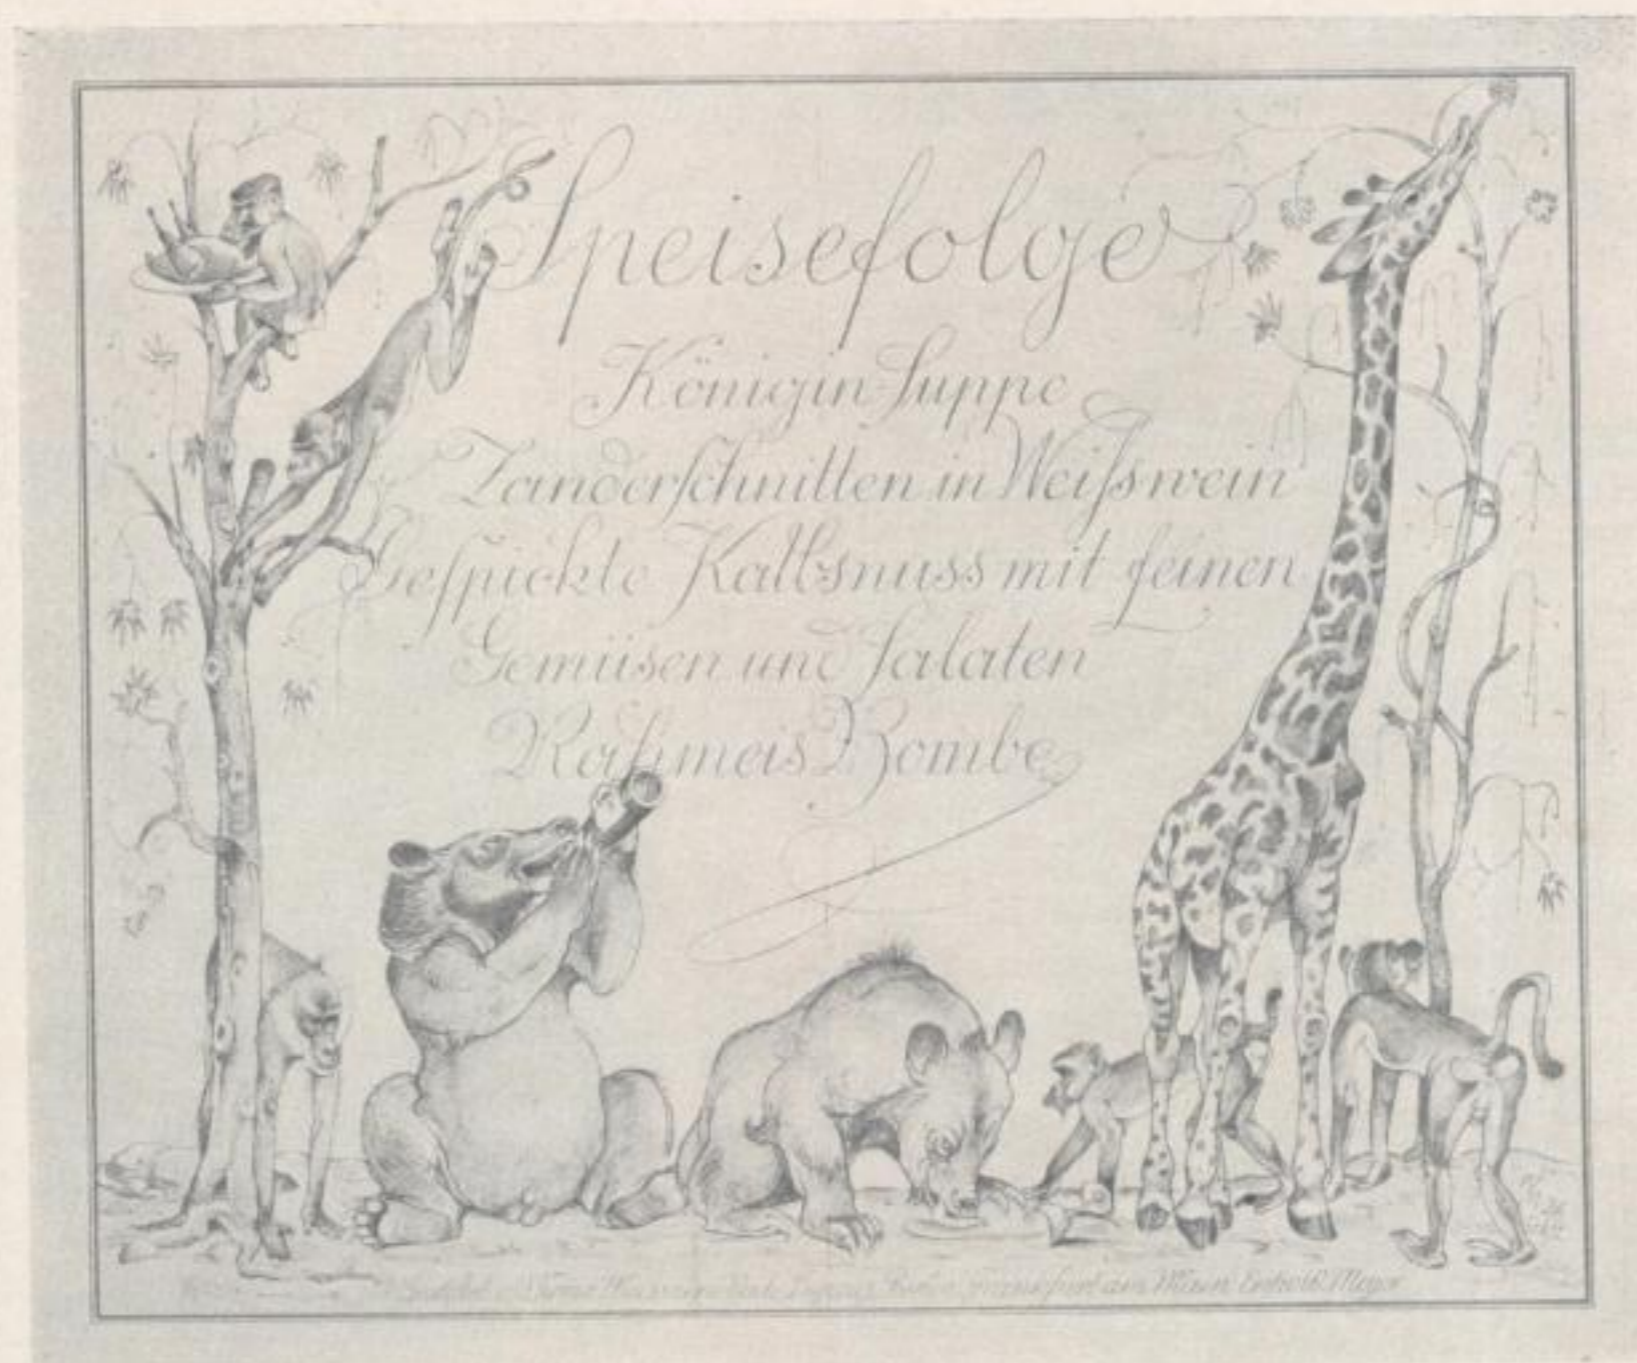 Speisefolge
Königin-Suppe
Zanderschnitten in Weißwein
Gespickte Kalbsnuss mit feinen
Gemüsen und Salaten
Rahmeis Bombe
Frankfurt am Main Entw. R. Meyer